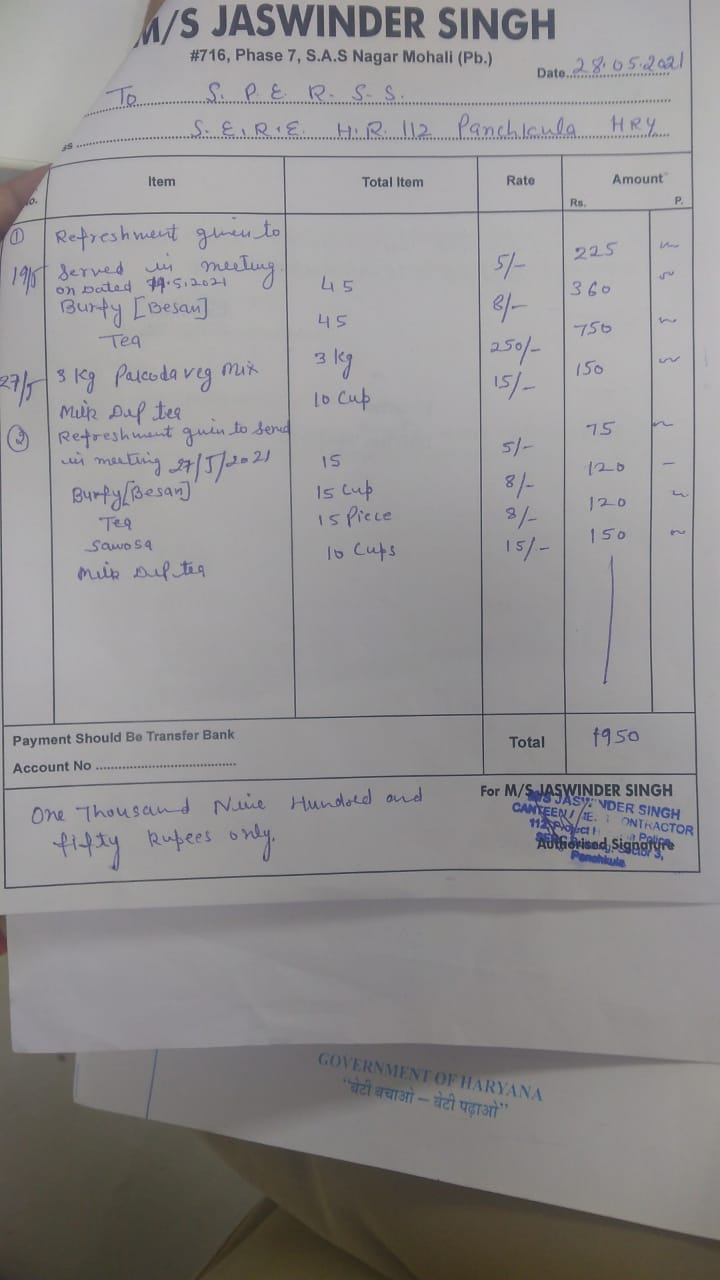 M/S JASWINDER SINGH
#716, Phase 7, S.A.S Nagar Mohali (Pb.)
Date..28.05.2021
To S. P. E. R. S. S.
S. E. R. E. H.R. 112 Panchkula HRY
Item Total Item Rate Amount
Rs. P.
① Refreshment given to
19/5 Served in meeting
on Dated 19.5.2021
Burfy [Besan] 45 5/- 225
Tea 45 8/- 360
27/5 3 Kg Pakoda veg mix 3 kg 250/- 750
Milk Dip tea 10 Cup 15/- 150
② Refreshment given to Send
in meeting 27/5/2021
Burfy [Besan] 15 5/- 75
Tea 15 Cup 8/- 120
Sawosa 15 Piece 8/- 120
Milk Dip tea 10 Cups 15/- 150
Payment Should Be Transfer Bank
Account No
Total 1950
One Thousand Nine Hundred and
fifty Rupees only.
For M/S JASWINDER SINGH
M/S JASWINDER SINGH
CANTEEN CONTRACTOR
112 Project Police
Sector 3,
Panchkula
Authorised Signature
GOVERNMENT OF HARYANA
"बेटी बचाओ – बेटी पढ़ाओ"